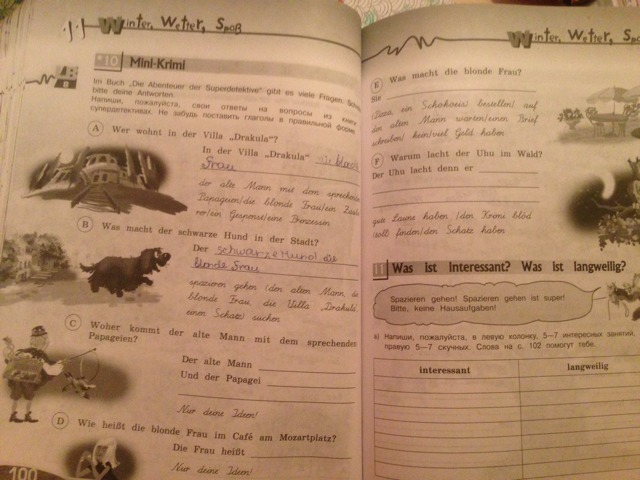 Winter, Wetter, Spaß
*10 Mini-Krimi
AB
Im Buch „Die Abenteuer der Superdetektive" gibt es viele Fragen.
bitte deine Antworten.
Напиши, пожалуйста, свои ответы на вопросы из книги
супердетективах. Не забудь поставить глаголы в правильной форме.
A Wer wohnt in der Villa „Drakula"?
In der Villa „Drakula"
Frau
der alte Mann mit dem sprechenden
Papageien/die blonde Frau/ein
rer/ein Gespenst/eine Prinzessin
B Was macht der schwarze Hund in der Stadt?
Der schwarze Hund die
blonde Frau
spazieren gehen/den alten Mann,
blonde Frau, die Villa „Drakula"
einen Schatz suchen
C Woher kommt der alte Mann mit dem sprechenden
Papageien?
Der alte Mann
Und der Papagei
Nur deine Ideen!
D Wie heißt die blonde Frau im Café am Mozartplatz?
Die Frau heißt
Nur deine Ideen!
100
Winter, Wetter,
E Was macht die blonde Frau?
Sie
(Pizza, ein Schokoeis) bestellen/auf
den alten Mann warten/einen Brief
schreiben/kein/viel Geld haben
F Warum lacht der Uhu im Wald?
Der Uhu lacht denn er
gute Laune haben/den Krimi blöd
/toll finden/den Schatz haben
11 Was ist interessant? Was ist langweilig?
Spazieren gehen! Spazieren gehen ist super!
Bitte, keine Hausaufgaben!
а) Напиши, пожалуйста, в левую колонку, 5—7 интересных занятий,
правую 5—7 скучных. Слова на с. 102 помогут тебе.
interessant langweilig